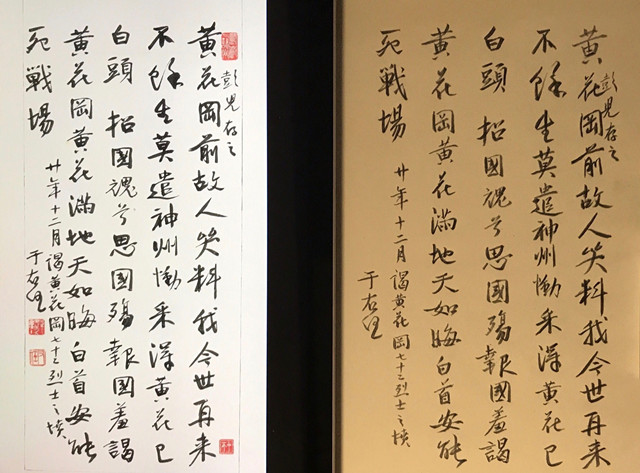 彭兒存之
黃花岡前故人笑料我今世再来
不餘生莫遣神州慟采得黄花已
白頭 招國魂兮思國殤報國羞謁
黄花岡黄花滿地天如晦白首安能
死戦場
廿年十二月謁黄花岡七十二烈士之墳
于右任
彭兒存之
黃花岡前故人笑料我今世再来
不餘生莫遣神州慟采得黄花已
白頭 招國魂兮思國殤報國羞謁
黄花岡黄花滿地天如晦白首安能
死戦場
廿年十二月謁黄花岡七十二烈士之墳
于右任